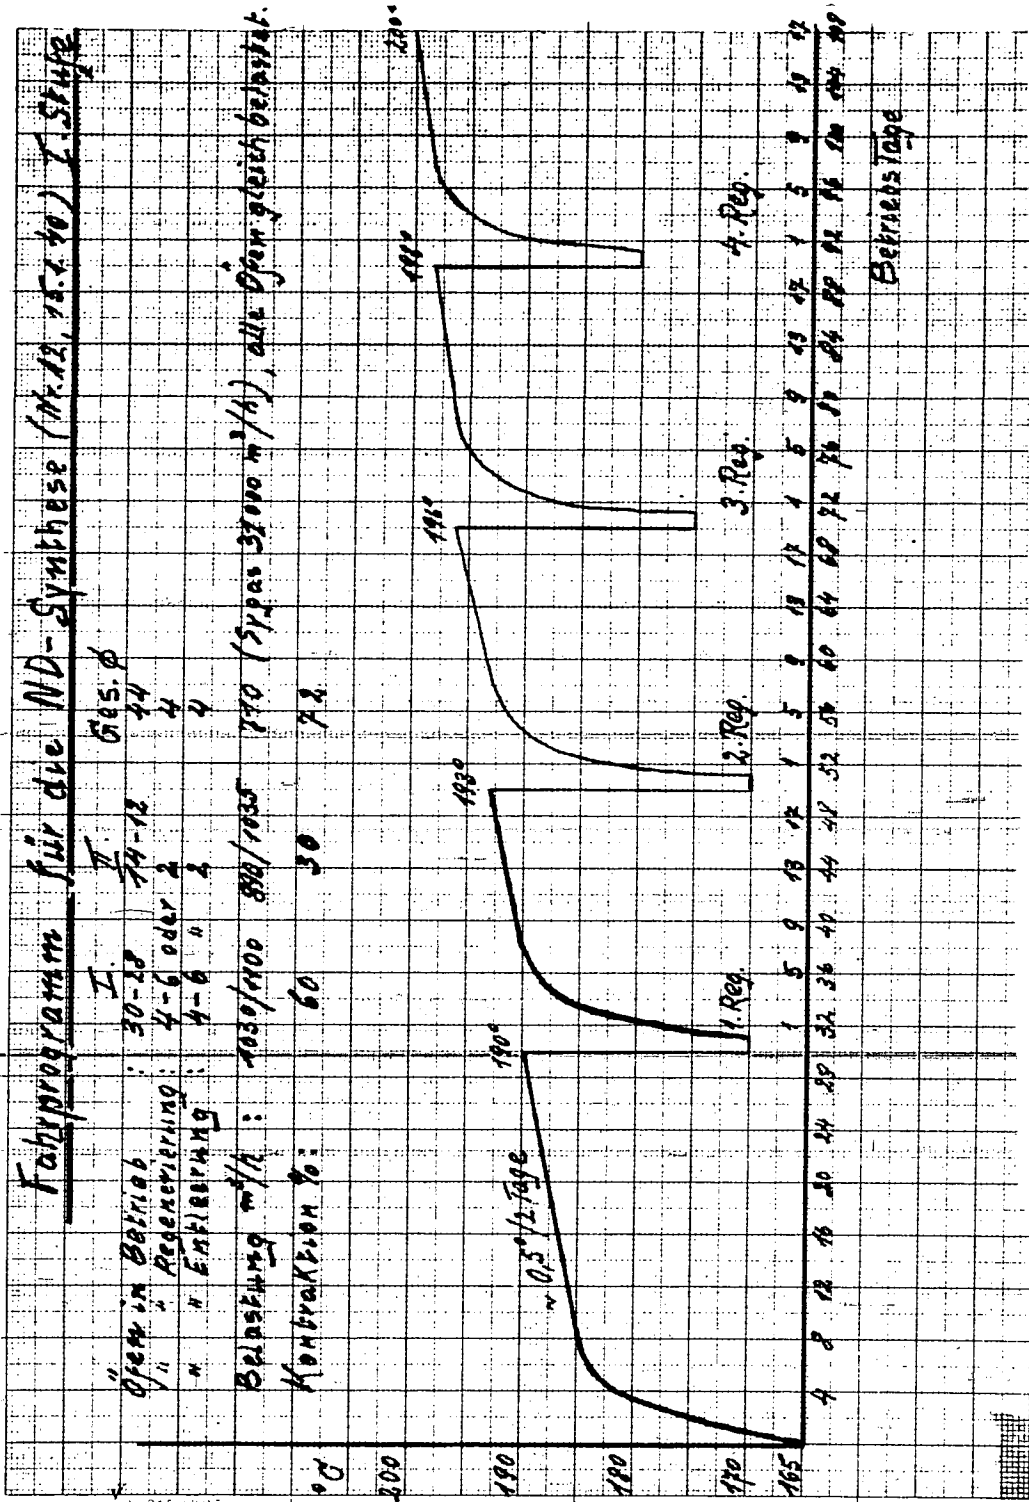 Fahrprogramm für die ND-Synthese (Nr. 12, 15.1.40) I. Stufe
I. II. Ges. ∅
Öfen in Betrieb : 30-28 14-12 44
" " Regenerierung : 4-6 oder 2 4
" " Entleerung : 4-6 " 2 4
Belastung m³/h : 1030/1100 890/1035 770 (Sygas 37000 m³/h), alle Öfen gleich belastet.
Kontraktion %: 60 30 72
°C
200
190
180
170
165
~ 0,5°/2 Tage
190°
193°
196°
198°
200°
1. Reg.
2. Reg.
3. Reg.
4. Reg.
1 5 9 13 17 1 5 9 13 17 1 5 9 13 17 1 5 9 13 17
4 8 12 16 20 24 28 32 36 40 44 48 52 56 60 64 68 72 76 80 84 88 92 96 100 104 108
Betriebstage